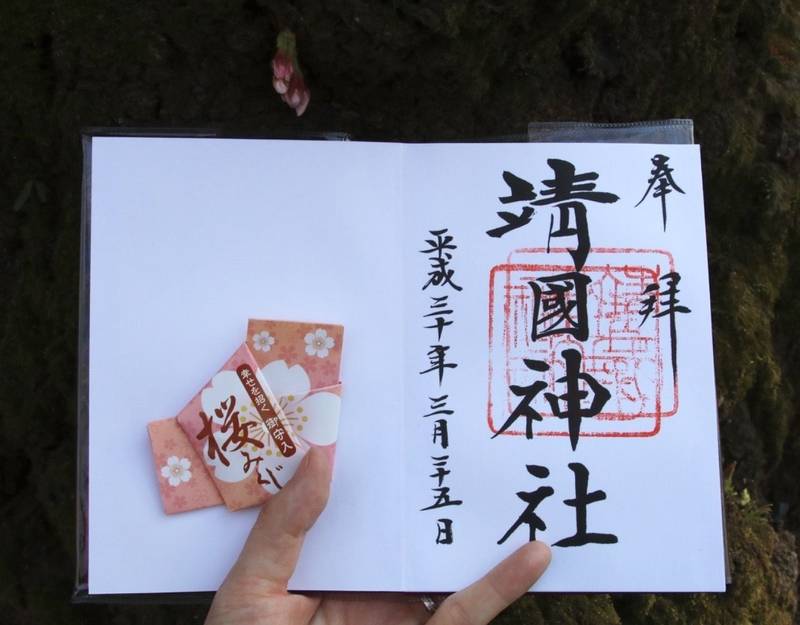 奉拝
靖國神社
平成三十年三月二十五日
幸せを招く
御守入
桜みくじ